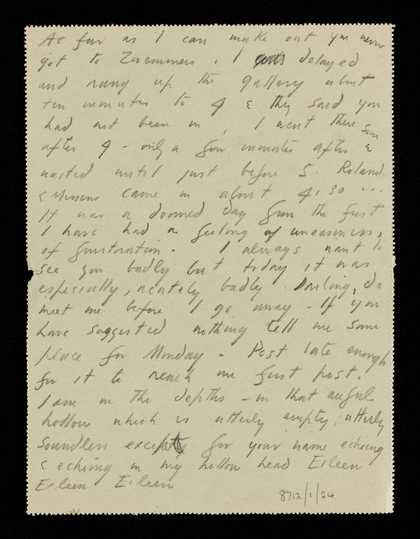 As far as I can make out you never
got to Zwemmers. I was delayed
and rang up the gallery about
ten minutes to 4 & they said you
had not been in, I went there soon
after 4 - only a few minutes after &
waited until just before 5. Roland
& came in about 4.30 ...
It was a doomed day from the first
I have had a feeling of uneasiness,
of frustration. I always want to
see you badly but today it was
especially, acutely badly. Darling, do
meet me before I go away - If you
have suggested nothing tell me some
place for Monday - Post late enough
for it to reach me first post.
I am in the depths - in that awful
hollow which is utterly empty, utterly
soundless except for your name echoing
& echoing in my hollow head Eileen
Eileen Eileen
8712/1/24